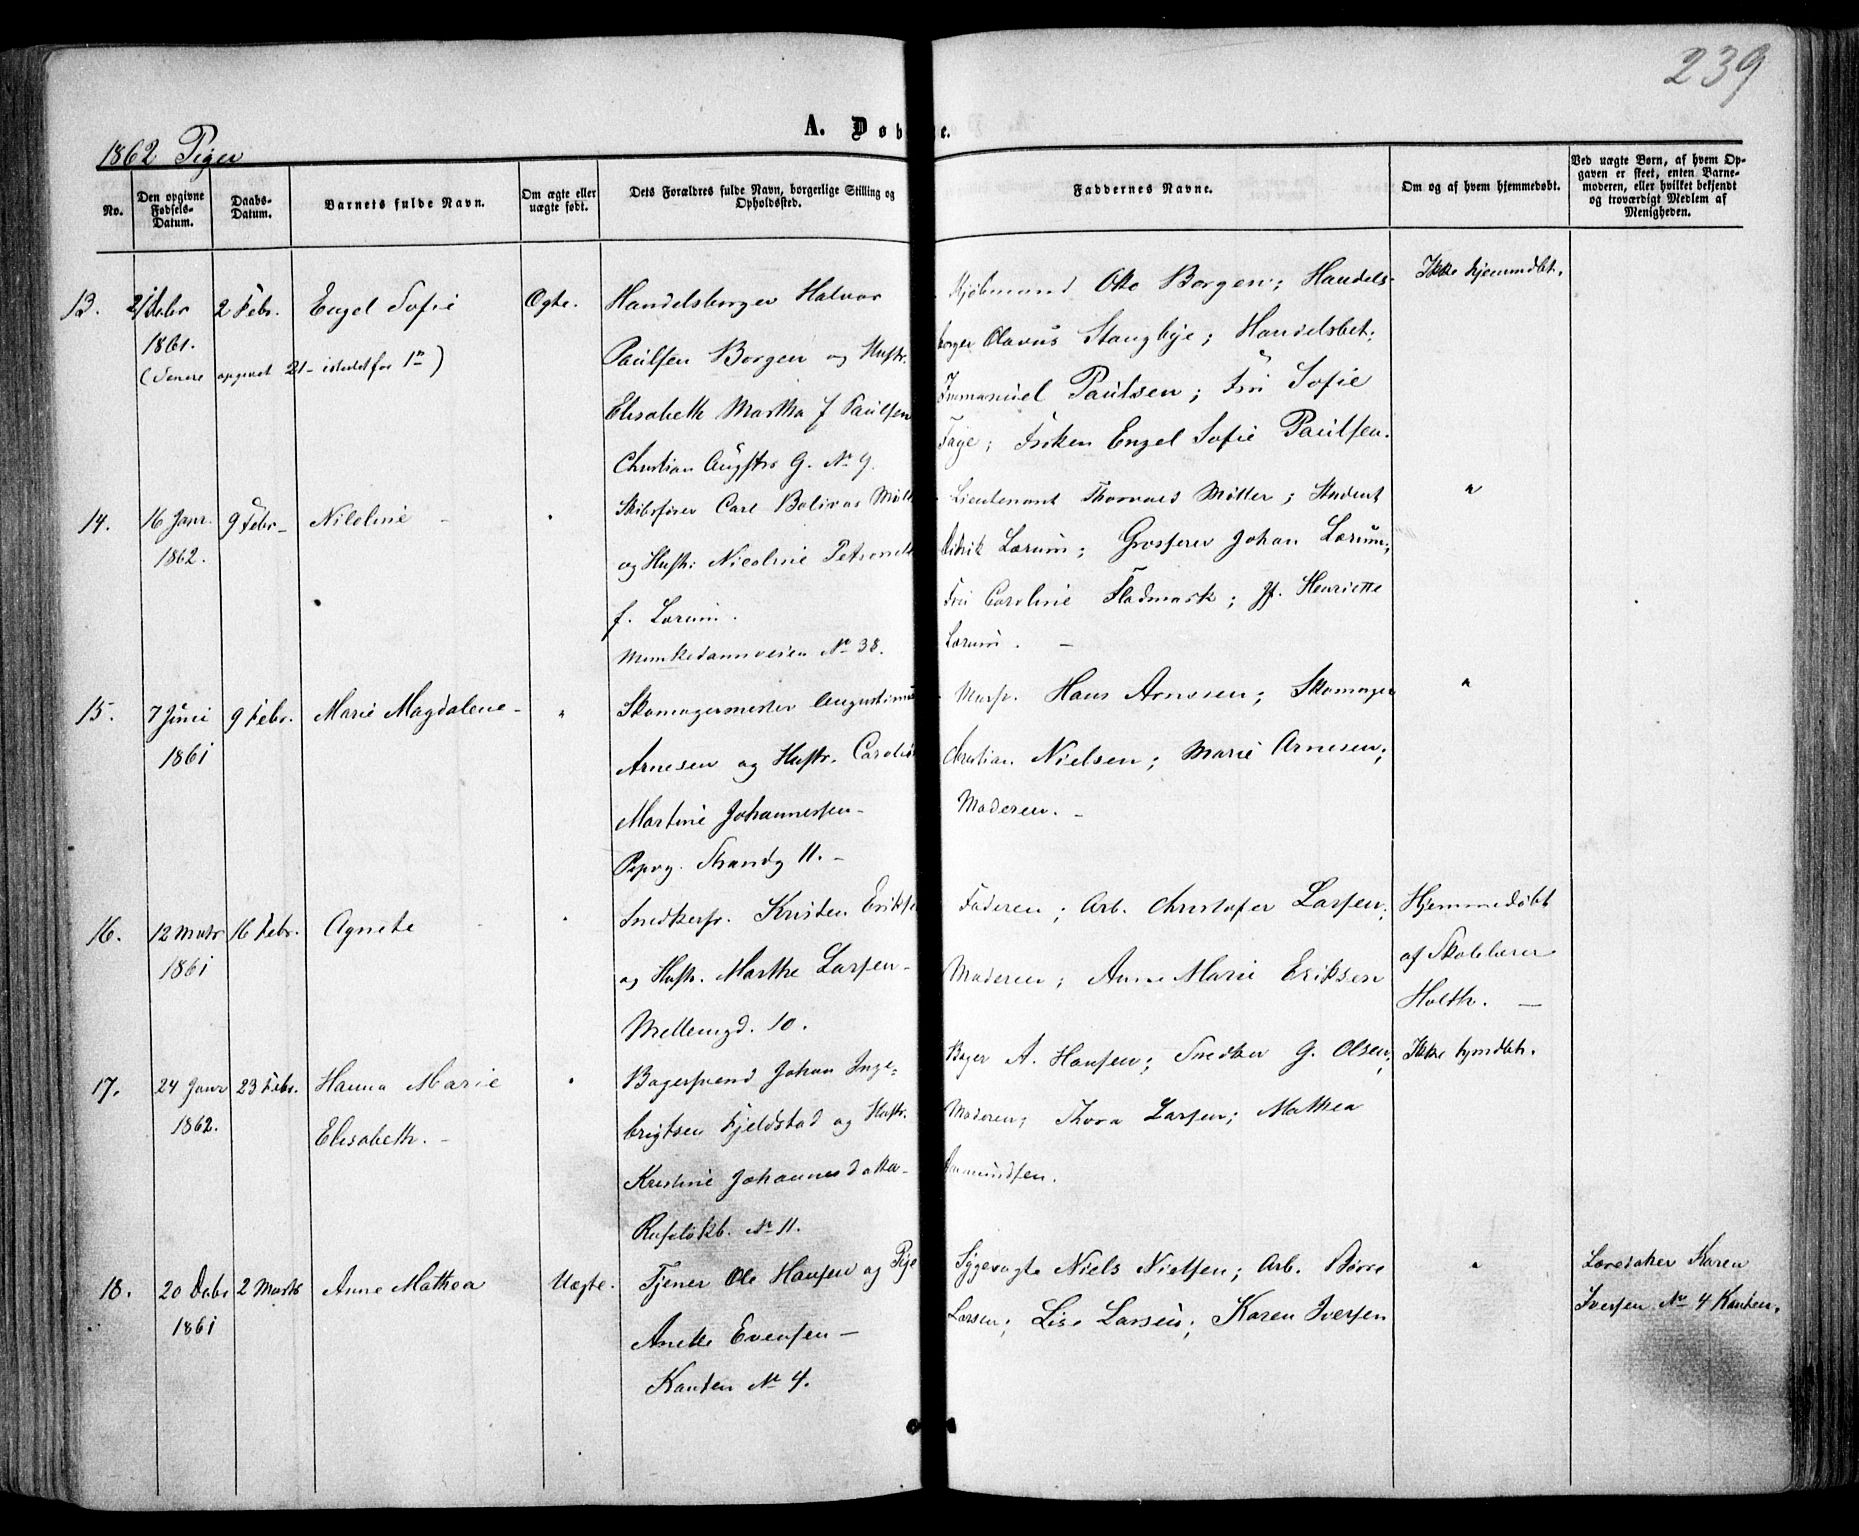 239
A. Døb e.
1862 Piger
No.
Den opgivne Fødsels-Datum.
Daabs-Datum.
Barnets fulde Navn.
Om ægte eller uægte født.
Dets Forældres fulde Navn, borgerlige Stilling og Opholdssted.
Faddernes Navne.
Om og af hvem hjemmedøbt.
Ved uægte Børn, af hvem Opgaven er skeet, enten Barnemoderen, eller hvilket bekjendt og troværdigt Medlem af Menigheden.
13.
21 Debr
1861.
2 Febr.
Engel Sofie
(Senere opgivet 21 istedetfor 1n)
Ægte.
Handelsborger Halvor
Paulsen Borgen og Hustr.
Elisabeth Martha f Paulsen
Christian Augstrs G. No 9.
Kjøbmand Otto Borgen; Handels-
borger Olavus Stangbye; Handelsbet.
Immanuel Paulsen; Fru Sofie
Faye; Frøken Engel Sofie Paulsen.
Ikke hjemmdbt.
14.
16 Janr.
1862.
9 Febr.
Nicoline
"
Skibsfører Carl Bolivar Møll
og Hustr: Nicoline Petronell
f. Lorum.
Munkedamsveien No 38.
Lieutenant Thorvald Møller; Student
Didrik Lærum; Grosserer Johan Lærum;
Fru Caroline Fladmark; Jf. Henriette
Lærum. -
"
15.
7 Juni
1861
9 Febr.
Marie Magdalene -
"
Skomagermester Augustinus
Arnesen og Hustr. Caroline
Martine Johannessen -
Pipvg. Strandg 11. -
Mursv. Hans Arnesen; Skomager
Christian Nielsen; Marie Arnesen;
Moderen. -
"
16.
12 Marts
1861
16 Febr.
Agnete
"
Snedkersv. Kristen Eriksen
og Hustr. Marthe Larsen -
Mellemgd. 10.
Faderen; Arb. Christofer Larsen;
Moderen; Anne Marie Eriksen
Hjemmedøbt
af Skolelærer
Holth. -
17.
24 Janr
1862.
23 Febr.
Hanna Marie
Elisabeth. -
"
Bagersvend Johan Inge-
brigtsen Fjeldstad og Hustr.
Kristine Johannesdatter -
Rufsløkb. No 11.
Bager A. Hansen; Snedker G. Olsen;
Moderen; Thora Larsen; Mathea
Aamundsen.
Ikke hjmdbt.
18.
20 Debr
1861
2 Marts
Anne Mathea
Uægte.
Tjener Ole Hansen og Pige
Anette Evensen -
Kanten No 4.
Sygevogte Niels Nielsen; Arb. Børre
Larsen; Lise Larsen; Karen Iversen
"
Losedsker Karen
Iversen No 4 Kanten.